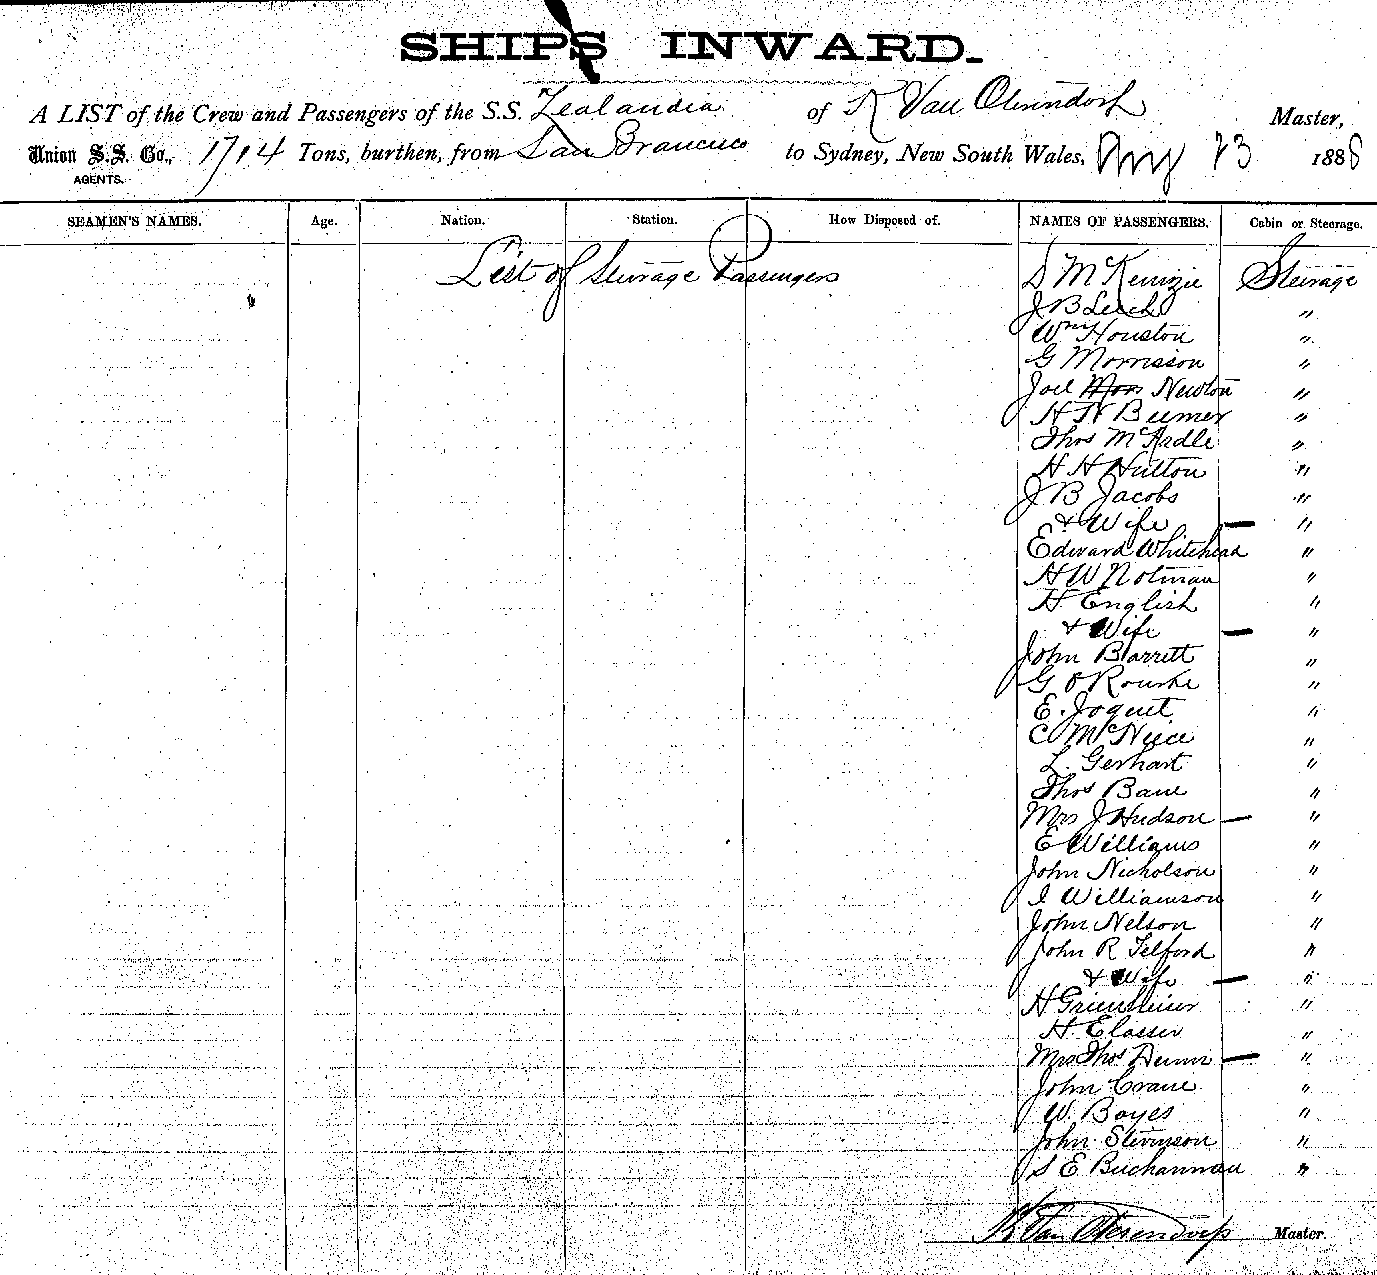 SHIPS INWARD.
A LIST of the Crew and Passengers of the S.S. Zealandia of R Van Oterendorp Master,
Union S.S. Co., 1714 Tons, burthen, from San Francisco to Sydney, New South Wales, 23 1888
AGENTS.
SEAMEN'S NAMES. Age. Nation. Station. How Disposed of. NAMES OF PASSENGERS. Cabin or Steerage.
List of Steerage Passengers D McKenzie Steerage
J B Leech "
Wm Houston "
G Morrisson "
Joel Newton "
H N Beemer "
Thos McArdle "
H H Hutton "
J B Jacobs "
& Wife — "
Edward Whitehead "
H W Notman "
H. English "
& Wife — "
John Barrett "
G O Rourke "
E. Joquet "
C McNiece "
L. Gerhart "
Thos Bane "
Mrs J Hudson — "
E Williams "
John Nicholson "
I Williamson "
John Nelson "
John R Telford "
& Wife — "
H "
H. Elasser "
Mrs Thos Dunn — "
John Crane "
W. Boyes "
John Stevenson "
S E Buchannan "
R Van Oterendorp Master.